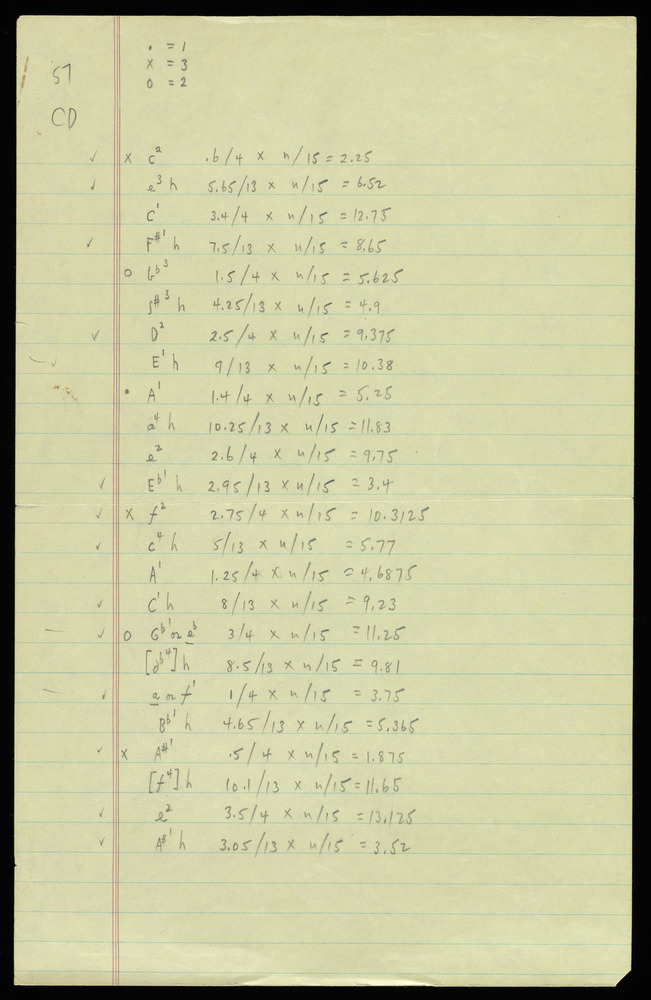 • = 1
x = 3
o = 2
57
CD
✓ x c² .6/4 x n/15 = 2.25
✓ e³ h 5.65/13 x n/15 = 6.52
C' 3.4/4 x n/15 = 12.75
✓ F#' h 7.5/13 x n/15 = 8.65
o Gb³ 1.5/4 x n/15 = 5.625
f#³ h 4.25/13 x n/15 = 4.9
✓ D² 2.5/4 x n/15 = 9.375
✓ E' h 9/13 x n/15 = 10.38
• A' 1.4/4 x n/15 = 5.25
a⁴ h 10.25/13 x n/15 = 11.83
e² 2.6/4 x n/15 = 9.75
✓ Eb' h 2.95/13 x n/15 = 3.4
✓ x f² 2.75/4 x n/15 = 10.3125
✓ c⁴ h 5/13 x n/15 = 5.77
A' 1.25/4 x n/15 = 4.6875
✓ C' h 8/13 x n/15 = 9.23
— ✓ o Gb' or e♭ 3/4 x n/15 = 11.25
[db⁴] h 8.5/13 x n/15 = 9.81
— ✓ a or f' 1/4 x n/15 = 3.75
Bb' h 4.65/13 x n/15 = 5.365
✓ x A#' .5/4 x n/15 = 1.875
[f⁴] h 10.1/13 x n/15 = 11.65
✓ e² 3.5/4 x n/15 = 13.125
✓ A#' h 3.05/13 x n/15 = 3.52